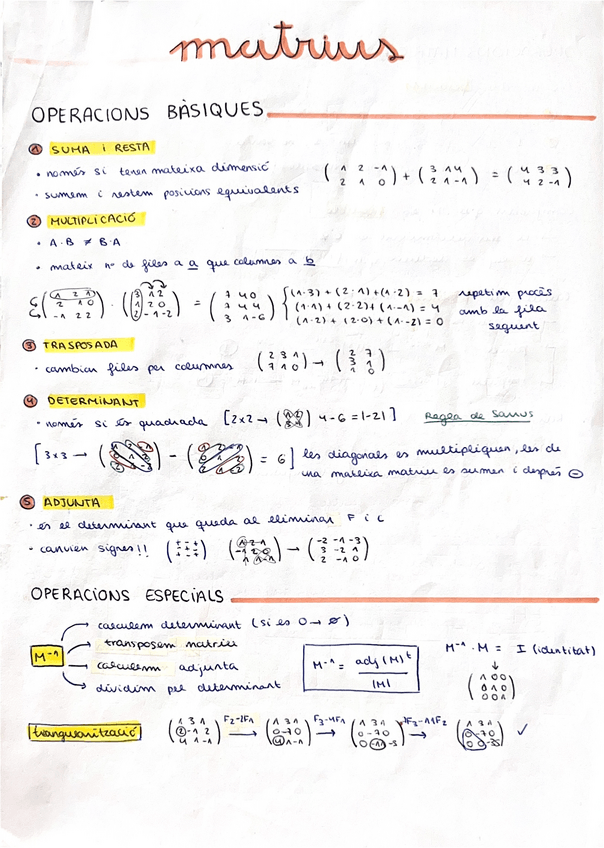 matrius
OPERACIONS BÀSIQUES
1 SUMA i RESTA
• només si tenen mateixa dimensió
• sumem i restem posicions equivalents
( 1 2 -1 ) + ( 3 1 4 ) = ( 4 3 3 )
( 2 1 0 ) ( 2 1 -1 ) ( 4 2 -1 )
2 MULTIPLICACIÓ
• A·B ≠ B·A
• mateix nº de files a a que columnes a b
( 1 2 1 ) · ( 3 1 2 ) = ( 7 4 0 ) { (1·3) + (2·1) + (1·2) = 7 repetim procés
( 2 1 0 ) ( 1 2 0 ) ( 7 4 4 ) (1·1) + (2·2) + (1·-1) = 4 amb la fila
( -1 2 2 ) ( 2 -1 -2 ) ( 3 1 -6 ) (1·2) + (2·0) + (1·-2) = 0 seguent
3 TRASPOSADA
• cambiar files per columnes
( 2 3 1 ) → ( 2 7 )
( 7 1 0 ) ( 3 1 )
( 1 0 )
4 DETERMINANT
• només si és quadrada [2x2 → ( 1 2 ) 4-6 = |-2| ] Regla de Sarrus
( 3 4 )
[3x3 → ( ) - ( ) = 6 ] les diagonals es multipliquen, les de
una mateixa matriu es sumen i després ⊖
5 ADJUNTA
• és el determinant que queda al eliminar F i C
• canvien signes!! ( + - + ) ( 1 2 1 ) → ( -2 -1 -3 )
( - + - ) ( -1 2 0 ) ( 3 -2 1 )
( + - + ) ( 1 1 -1 ) ( 2 -1 0 )
OPERACIONS ESPECIALS
M⁻¹
calculem determinant (si es 0 → ∅)
transposem matriu
calculem adjunta
dividim pel determinant
M⁻¹ = adj (M)ᵗ / |M|
M⁻¹ · M = I (identitat)
( 1 0 0 )
( 0 1 0 )
( 0 0 1 )
triangularització
( 1 3 1 ) F2-2F1 → ( 1 3 1 ) F3-4F1 → ( 1 3 1 ) 7F3-11F2 → ( 1 3 1 ) ✓
( 2 -1 2 ) ( 0 -7 0 ) ( 0 -7 0 ) ( 0 -7 0 )
( 4 1 -1 ) ( 4 1 -1 ) ( 0 -11 -5 ) ( 0 0 -35 )